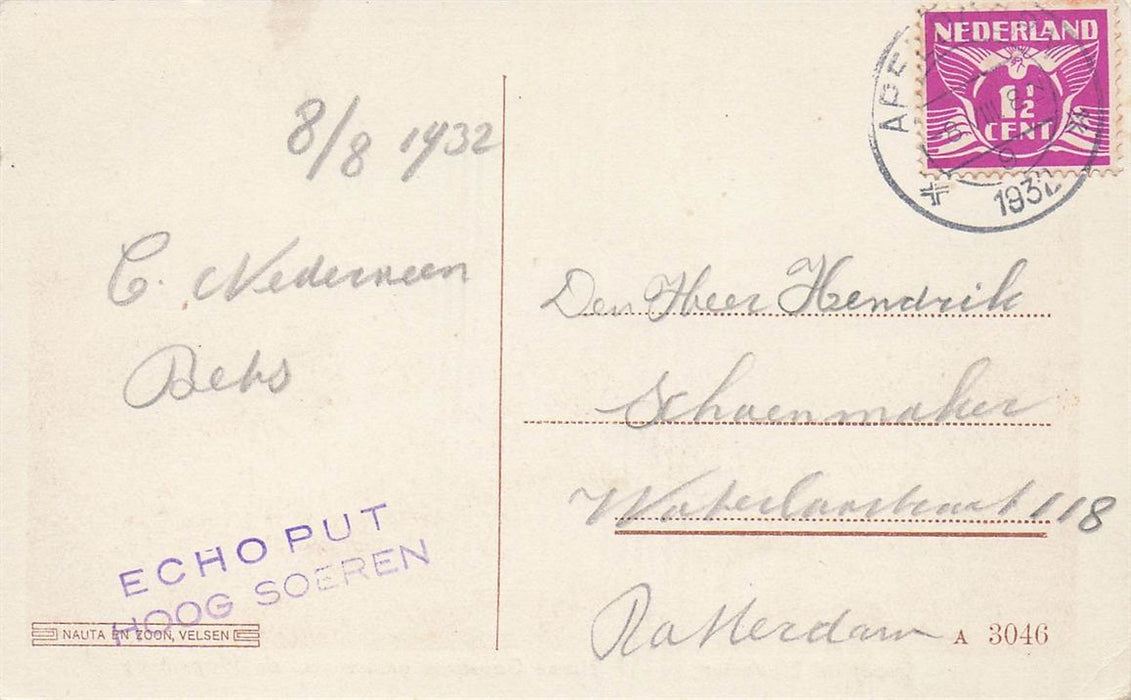 8/8 1932
C. Nederveen
Bebs
ECHO PUT
HOOG SOEREN
NAUTA EN ZOON, VELSEN
NEDERLAND
1½
CENT
1932
Den Heer Hendrik
Schoenmaker
Waterloostraat 118
Rotterdam
A 3046